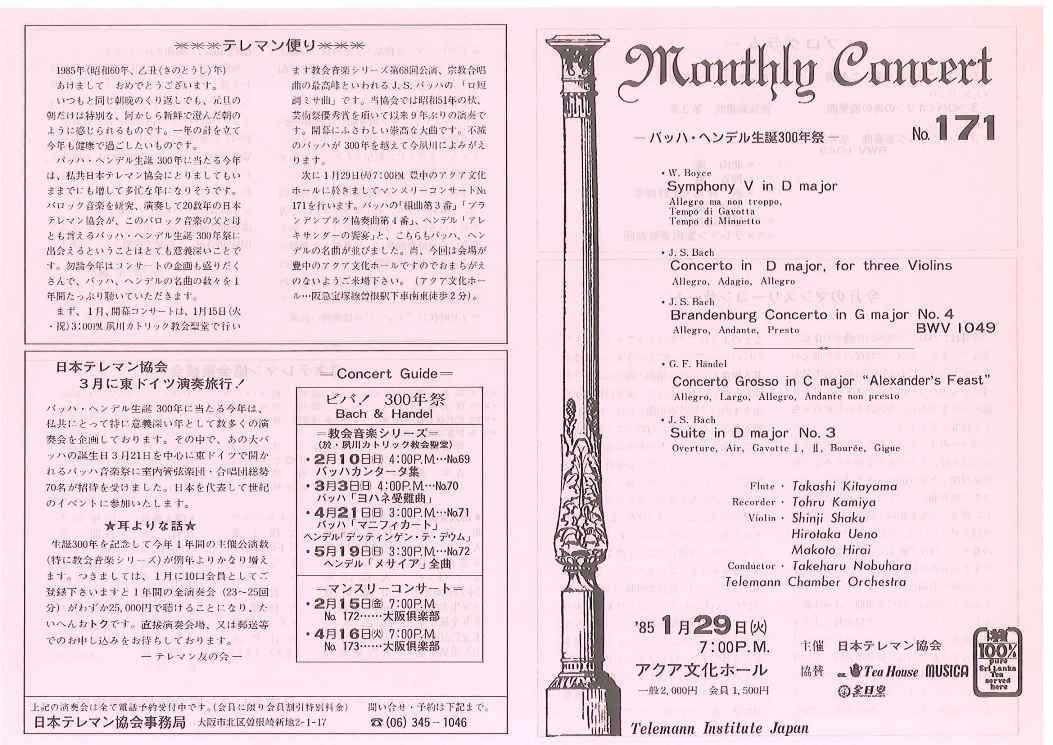 ＊＊＊テレマン便り＊＊＊
1985年(昭和60年、乙丑(きのとうし)年)
あけまして　おめでとうございます。
いつもと同じ朝晩のくり返しでも、元旦の
朝だけは特別な、何かしら新鮮で澄んだ朝の
ように感じられるものです。一年の計を立て
今年も健康で過ごしたいものです。
バッハ・ヘンデル生誕 300年に当たる今年
は、私共日本テレマン協会にとりましてもい
ままでにも増して多忙な年になりそうです。
バロック音楽を研究、演奏して20数年の日本
テレマン協会が、このバロック音楽の父と母
とも言えるバッハ・ヘンデル生誕 300年祭に
出会えるということはとても意義深いことで
す。勿論今年はコンサートの企画も盛りだく
さんで、バッハ、ヘンデルの名曲の数々を1
年間たっぷり聴いていただきます。
まず、1月、開幕コンサートは、1月15日(火
・祝)3:00P.M.夙川カトリック教会聖堂で行い
ます教会音楽シリーズ第68回公演、宗教合唱
曲の最高峰といわれるJ.S.バッハの「ロ短
調ミサ曲」です。当協会では昭和51年の秋、
芸術祭優秀賞を頂いて以来9年ぶりの演奏で
す。開幕にふさわしい崇高な大曲です。不滅
のバッハが 300年を越えて今夙川によみがえ
ります。
次に1月29日(火)7:00P.M. 豊中のアクア文化
ホールに於きましてマンスリーコンサート№
171を行います。バッハの「組曲第3番」「ブラ
ンデンブルク協奏曲第4番」、ヘンデル「アレ
キサンダーの饗宴」と、こちらもバッハ、ヘン
デルの名曲が並びました。尚、今回は会場が
豊中のアクア文化ホールですのでおまちがえ
のないようご来場下さい。（アクア文化ホー
ル…阪急宝塚線曽根駅下車南東徒歩2分）。
日本テレマン協会
3月に東ドイツ演奏旅行！
バッハ・ヘンデル生誕 300年に当たる今年は、
私共にとって特に意義深い年として数多くの演
奏会を企画しております。その中で、あの大バ
ッハの誕生日3月21日を中心に東ドイツで開か
れるバッハ音楽祭に室内管弦楽団・合唱団総勢
70名が招待を受けました。日本を代表して世紀
のイベントに参加いたします。
★耳よりな話★
生誕300年を記念して今年1年間の主催公演数
(特に教会音楽シリーズ)が例年よりかなり増え
ます。つきましては、1月に10口会員としてご
登録下さいますと1年間の全演奏会（23~25回
分）がわずか25,000円で聴けることになり、た
いへんおトクです。直接演奏会場、又は郵送等
でのお申し込みをお待ちしております。
― テレマン友の会 ―
＝Concert Guide＝
ビバ！ 300年祭
Bach & Handel
＝教会音楽シリーズ＝
(於・夙川カトリック教会聖堂)
・2月10日(日) 4:00P.M.…No.69
バッハカンタータ集
・3月3日(日) 4:00P.M.…No.70
バッハ「ヨハネ受難曲」
・4月21日(日) 3:00P.M.…No.71
バッハ「マニフィカート」
ヘンデル「デッティンゲン・テ・デウム」
・5月19日(日) 3:30P.M.…No.72
ヘンデル「メサイア」全曲
―マンスリーコンサート＝
・2月15日(金) 7:00P.M.
No. 172……大阪倶楽部
・4月16日(火) 7:00P.M.
No. 173……大阪倶楽部
上記の演奏会は全て電話予約受付中です。(会員に限り会員割引特別料金)　問い合せ・予約は下記まで。
日本テレマン協会事務局　大阪市北区曽根崎新地2-1-17　☎(06) 345－1046
Monthly Concert
―バッハ・ヘンデル生誕300年祭―
No. 171
・W. Boyce
Symphony V in D major
Allegro ma non troppo,
Tempo di Gavotta
Tempo di Minuetto
・J. S. Bach
Concerto in D major, for three Violins
Allegro, Adagio, Allegro
・J. S. Bach
Brandenburg Concerto in G major No. 4
Allegro, Andante, Presto
BWV 1049
・G. F. Händel
Concerto Grosso in C major "Alexander's Feast"
Allegro, Largo, Allegro, Andante non presto
・J. S. Bach
Suite in D major No. 3
Overture, Air, Gavotte I, II, Bourée, Gigue
Flute・Takashi Kitayama
Recorder・Tohru Kamiya
Violin・Shinji Shaku
Hirotaka Ueno
Makoto Hirai
Conductor・Takeharu Nobuhara
Telemann Chamber Orchestra
'85 1月29日(火)
7:00P.M.
アクア文化ホール
一般2,000円　会員1,500円
主催　日本テレマン協会
協賛　Tea House MUSICA
全日空
100%
pure
Sri Lanka
Tea
served
here
Telemann Institute Japan